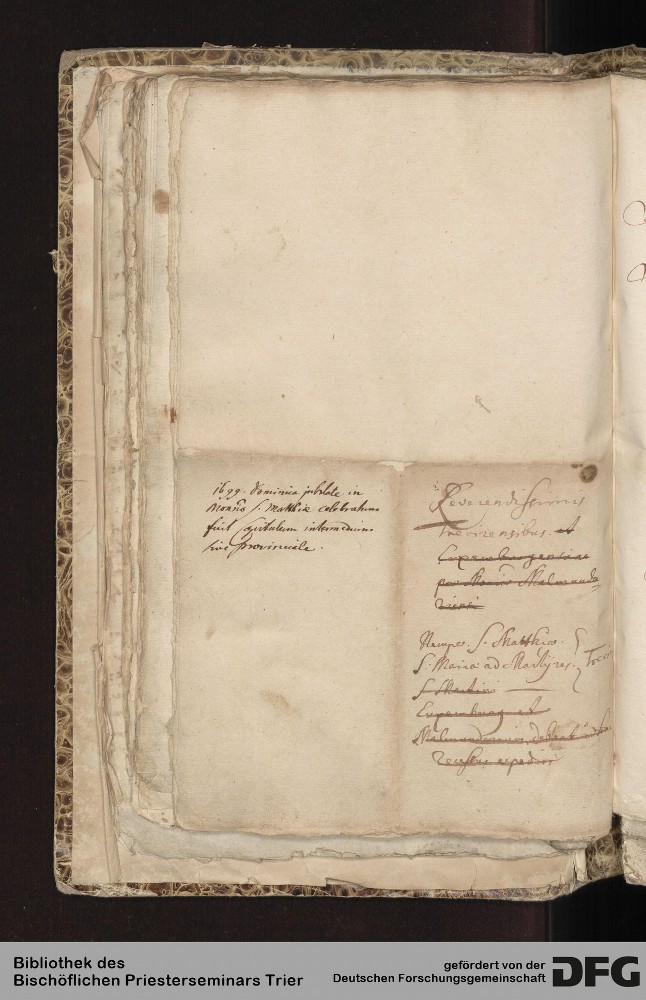 1699 Dominica jubilate in
Monrio S. Matthiæ celebratum
fuit Capitulum intermedium
sive provinciale.
Reverendissimis
Trevirensibus. et
Luxemburgensibus
per Monrium Malmunda-
riensi
Nempe. S. Matthiæ.
S. Maria ad Martyres.
S. Martini
Luxemburg et
Malmundariensis, debeat
recessus expediri
Bibliothek des
Bischöflichen Priesterseminars Trier
gefördert von der
Deutschen Forschungsgemeinschaft
DFG